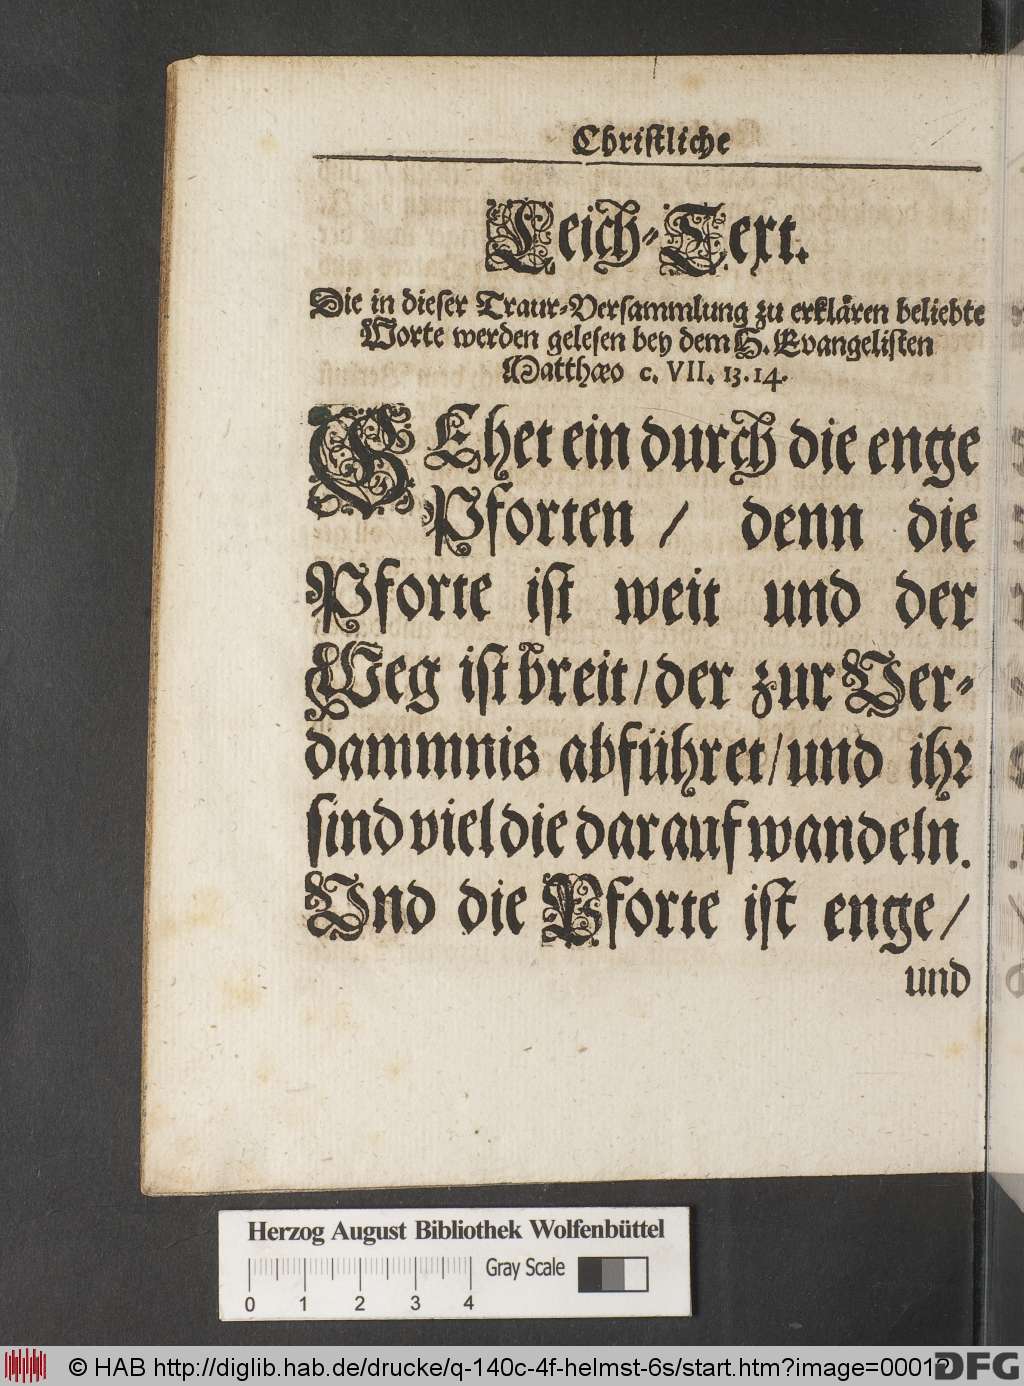 Christliche
Leich-Text.
Die in dieser Traur-Versammlung zu erklären beliebte
Worte werden gelesen bey dem H. Evangelisten
Matthæo c. VII. 13. 14.
GEhet ein durch die enge
Pforten / denn die
Pforte ist weit und der
Weg ist breit / der zur Ver-
dammnis abführet / und ihr
sind viel die darauf wandeln.
Und die Pforte ist enge /
und
Herzog August Bibliothek Wolfenbüttel
0 1 2 3 4
Gray Scale
© HAB http://diglib.hab.de/drucke/q-140c-4f-helmst-6s/start.htm?image=00012
DFG